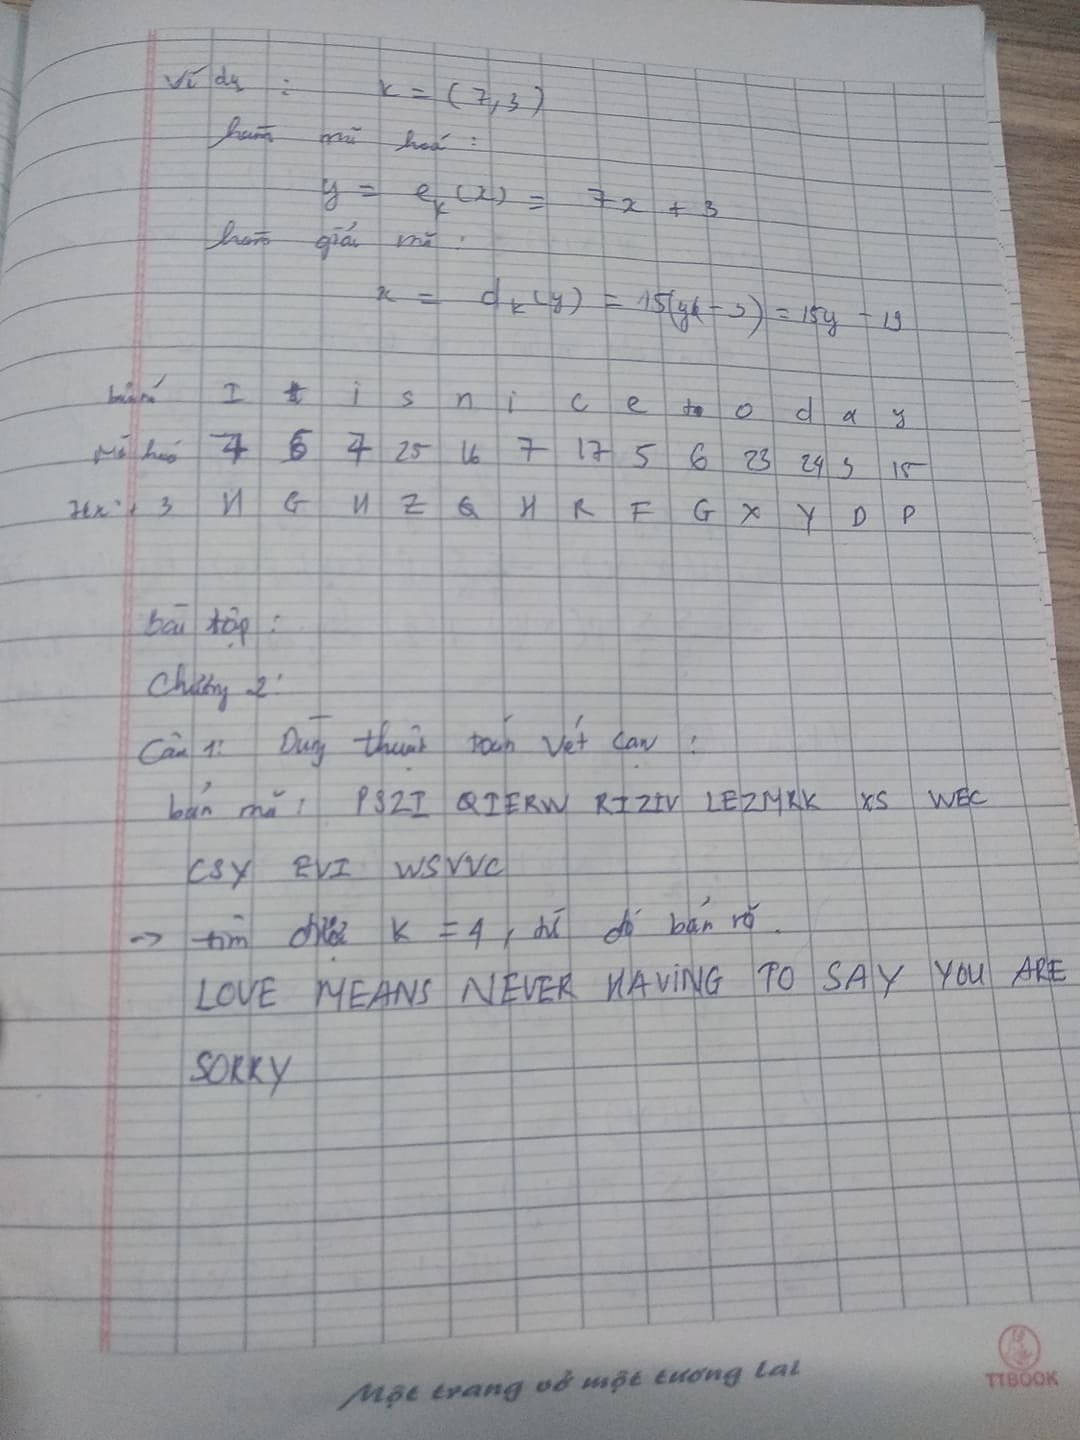 Ví dụ : k = (7,3)
hàm mã hoá :
y = e_k(x) = 7x + 3
hàm giải mã :
x = d_k(y) = 15(y - 3) = 15y - 19
bản rõ I t i s n i c e to o d a y
Mã hoá 7 6 7 25 16 7 17 5 6 23 24 3 15
7x + 3 H G H Z Q H R F G X Y D P
bài tập :
Chương 2 :
Câu 1: Dùng thuật toán vét cạn :
bản mã : PSZI QIERW RIZIV LEZMRK XS WEC
CSY EVI WSVVC
-> tìm được k = 4, khi đó bản rõ.
LOVE MEANS NEVER HAViNG TO SAY YOU ARE
SORRY
Một trang vở một tương lai
TTBOOK